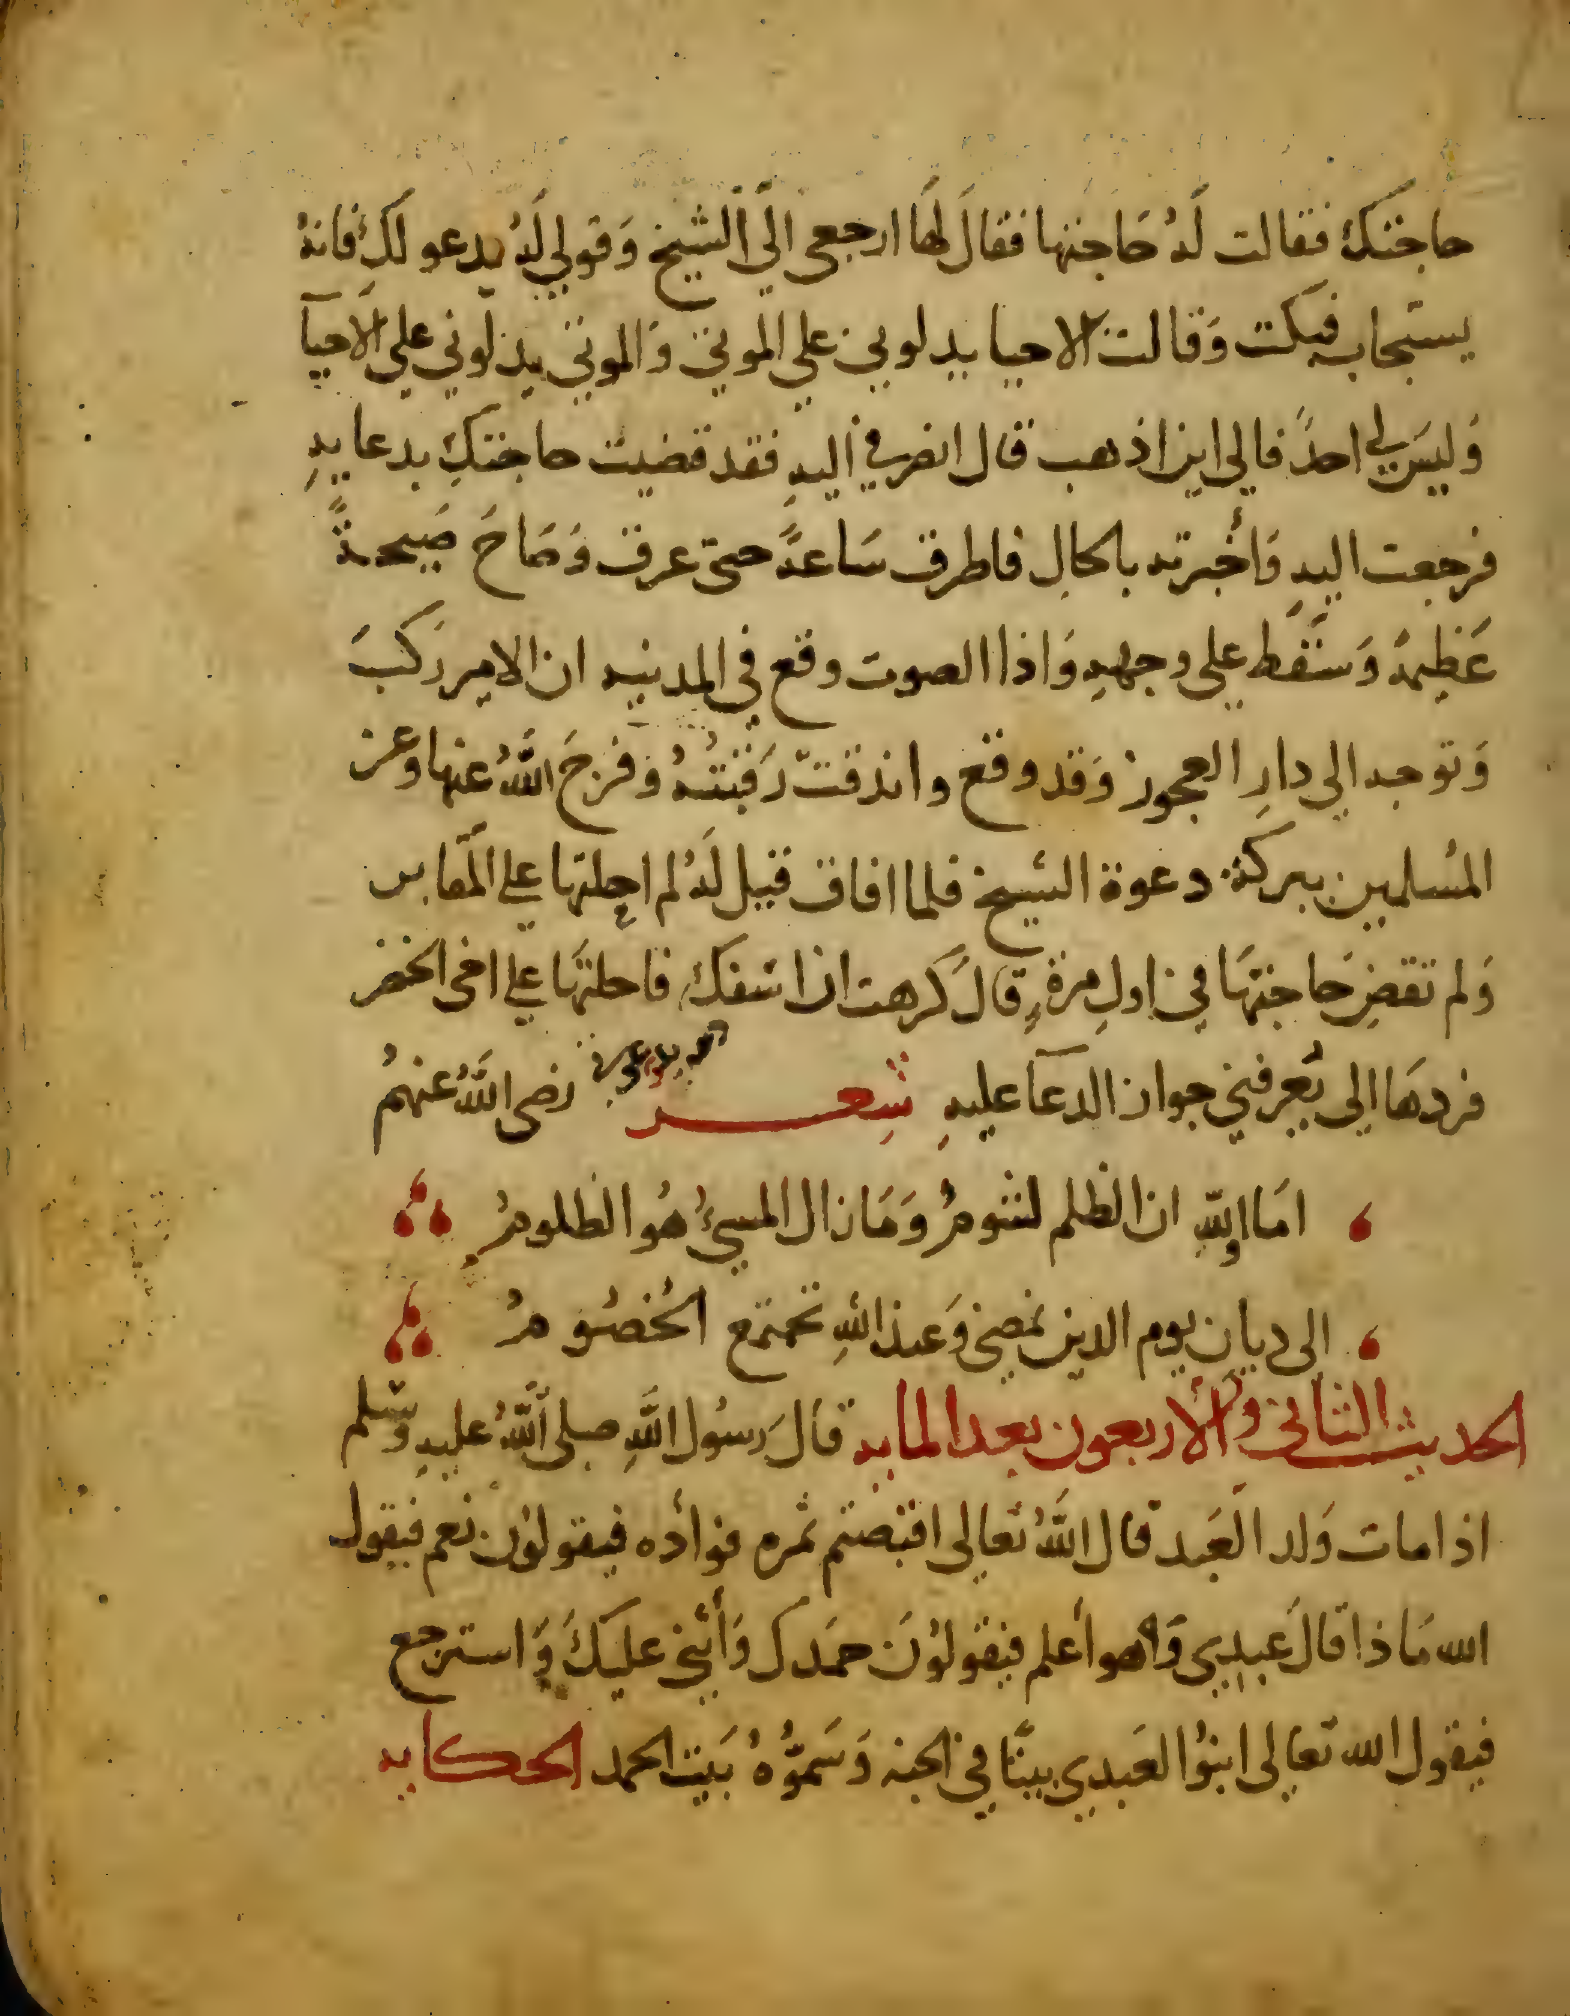 حاجتك فقالت لَهُ حَاجتها فقالَ لَها ارجعي الَي الشيخ وَقولي لَهُ يدعو لَكِ فانهُ
يستجاب فبكت وَقالت الاحيا يدلوني علي الموتي وَالموتي يدلوني علي الاحيآ
وَليسَ لي احدٌ فالي اين اذهب قال انصرفي اليهِ فقد قضيت حاجتكِ بدعايهِ
فرجعت اليهِ وَأخبرته بالحالِ فاطرق سَاعةً حتى عرق وَصَاحَ صَيحةً
عَظِيمةً وَسَقَط علي وجههِ وَاذا الصوت وقع في المدينه ان الامير رَكبَ
وَتوجه الي دارِ العجوز وَقد وقع واندقت رَقبتُهُ وَفرجَ اللهُ عنها وعن
المسلمين ببركة دعوة الشيخ فلما افاق قيل لَهُ لم احلتها علي المقابر
وَلم تقضِ حَاجتهَا في اولِ مرةٍ قالَ كرهت ان اسفك فاحلتهَا علي اخى الخضر
فردهَا الي يُعرفني جواز الدعآ عليهِ شِعر رضي اللهُ عنهمُ
امَا واللهِ ان الظلم لشومُ وَمَا زال المسيُ هُو الظلومُ
الى ديان يوم الدين نمضي وَعند اللهِ تجتمع الخصُومُ
الحديث الثاني والأربعون بعد المايه قالَ رسُول اللهِ صلى اللهُ عليهِ وَسَلم
اذا مات وَلد العَبد قال اللهُ تعَالى اقبضتم ثمره فوأده فيقولوُن نعم فيقول
الله مَاذا قالَ عَبدِي وَهو أعلم فيقولوُنَ حمَدك وَأثني عليكَ وَاسترجع
فيقول الله تعَالى ابنوُا لعَبدِي بيتًا في الجنه وَسَموُّهُ بَيت الحمد الحكايه